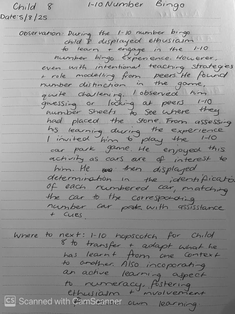 Child 8 1-10 Number Bingo
Date: 5/8/25
Observation: During the 1-10 number bingo
child 8 displayed enthusiasm
to learn + engage in the 1-10
number bingo experience. However,
even with intentional teaching strategies
+ role modelling from peers. He found
number distinction in the game,
quite challenging. I observed him
guessing or looking at peers 1-10
number sheets to see where they
had placed the stone. From assessing
his learning during the experience
I invited him to play the 1-10
car park game. He enjoyed this
activity as cars are of interest to
him. He then displayed
determination in the identification
of each numbered car, matching
the car to the corresponding
number car park with assistance
+ cues.
Where to next: 1-10 hopscotch for Child
8 to transfer + adapt what he
has learnt from one context
to another. Also incorporating
an active learning aspect
to numeracy, fostering
enthusiasm + involvement
own learning.
CS Scanned with CamScanner